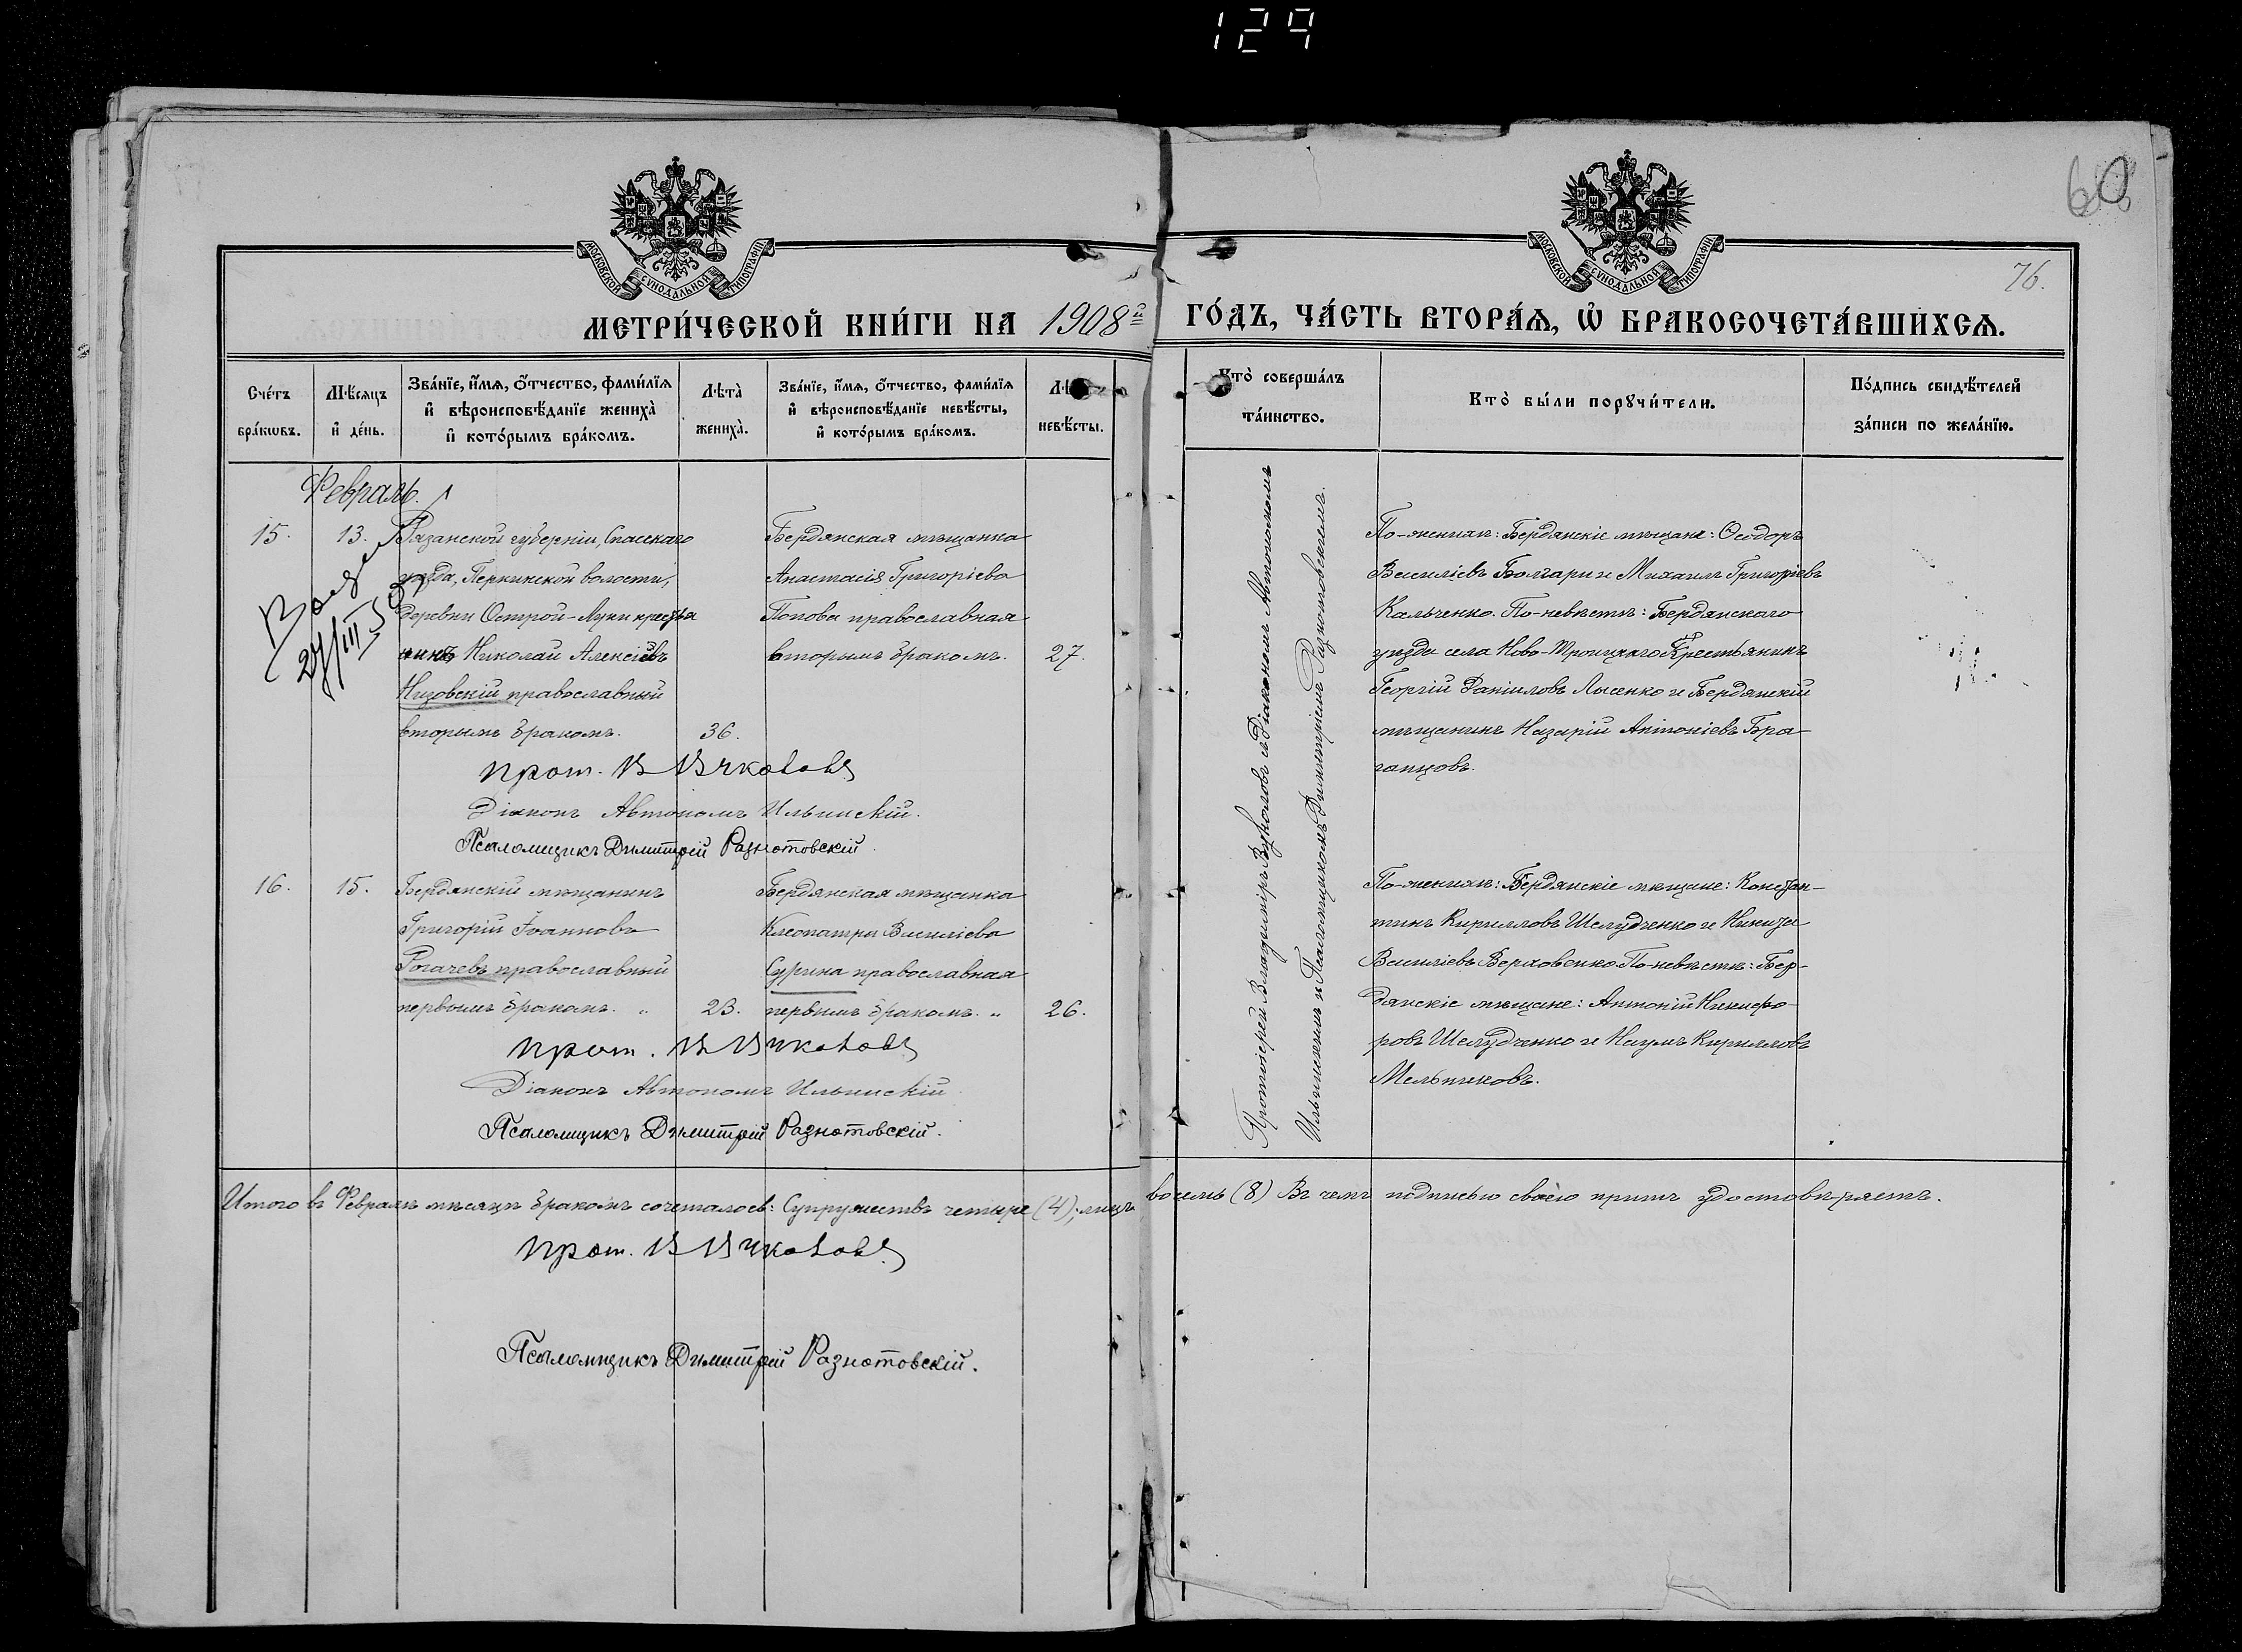 129
60
76.
МОСКОВСКОЙ СУНОДАЛЬНОЙ ТИПОГРАФІИ
МОСКОВСКОЙ СУНОДАЛЬНОЙ ТИПОГРАФІИ
МЕТРИ́ЧЕСКОЙ КНИ́ГИ НА 1908й ГО́ДЪ, ЧА́СТЬ ВТОРА́Ѧ, Ѽ БРАКОСОЧЕТА́ВШИХСѦ.
Сче́тъ бра́кωвъ.
Мѣ́сяцъ и҆ де́нь.
Зва́нїе, и҆́мѧ, ѻ҆́тчество, фами́лїѧ и҆ вѣроисповѣ́данїе жениха̀ и҆ кото́рымъ бра́комъ.
Лѣта̀ жениха̀.
Зва́нїе, и҆́мѧ, ѻ҆́тчество, фами́лїѧ и҆ вѣроисповѣ́данїе невѣ́сты, и҆ кото́рымъ бра́комъ.
невѣ́сты.
Кто̀ соверша́лъ та́инство.
Кто̀ бы́ли порꙋчи́тели.
По́дпись свидѣ́телей за́писи по жела́нїю.
Февраль.
15.
13.
Рязанской губерніи, Спасскаго
уѣзда, Перкинской волости,
деревни Острой-Луки крестья
нинъ Николай Алексіевъ
Низовскій православный
вторымъ бракомъ.
36.
Бердянская мѣщанка
Анастасія Григоріева
Попова православная
вторымъ бракомъ.
27.
Протоіерей Владиміръ Вуколовъ и Діаконъ Автономомъ
Ильинскимъ и Псаломщикомъ Димитріемъ Разнотовскимъ.
По-жениху: Бердянскіе мѣщане: Ѳеодоръ
Василіевъ Болгари и Михаилъ Григоріевъ
Кальченко. По-невѣстѣ: Бердянскаго
уѣзда села Ново-Троицкаго Крестьянинъ
Георгій Даніиловъ Лысенко и Бердянскій
мѣщанинъ Назарій Антоніевъ Бра-
ганцовъ.
Прот. В Вуколовъ
Діаконъ Автономъ Ильинскій.
Псаломщикъ Димитрій Разнотовскій.
16.
15.
Бердянскій мѣщанинъ
Григорій Іоанновъ
Рогачевъ православный
первымъ бракомъ. „
23.
Бердянская мѣщанка
Клеопатра Василіева
Сурина православная
первымъ бракомъ. „
26.
По-жениху: Бердянскіе мѣщане: Констан-
тинъ Кирилловъ Шелудченко и Никита
Василіевъ Верховенко. По-невѣстѣ: Бер-
дянскіе мѣщане: Антоній Никифо-
ровъ Шелудченко и Наумъ Кирилловъ
Мельниковъ.
Прот. В Вуколовъ
Діаконъ Автономъ Ильинскій
Псаломщикъ Димитрій Разнотовскій.
Итого въ Февралѣ мѣсяцѣ бракомъ сочеталось: Супружествъ четыре (4); лицъ восемь (8) Въ чемъ подписью своею причтъ удостовѣряетъ.
Прот. В Вуколовъ
Псаломщикъ Димитрій Разнотовскій.